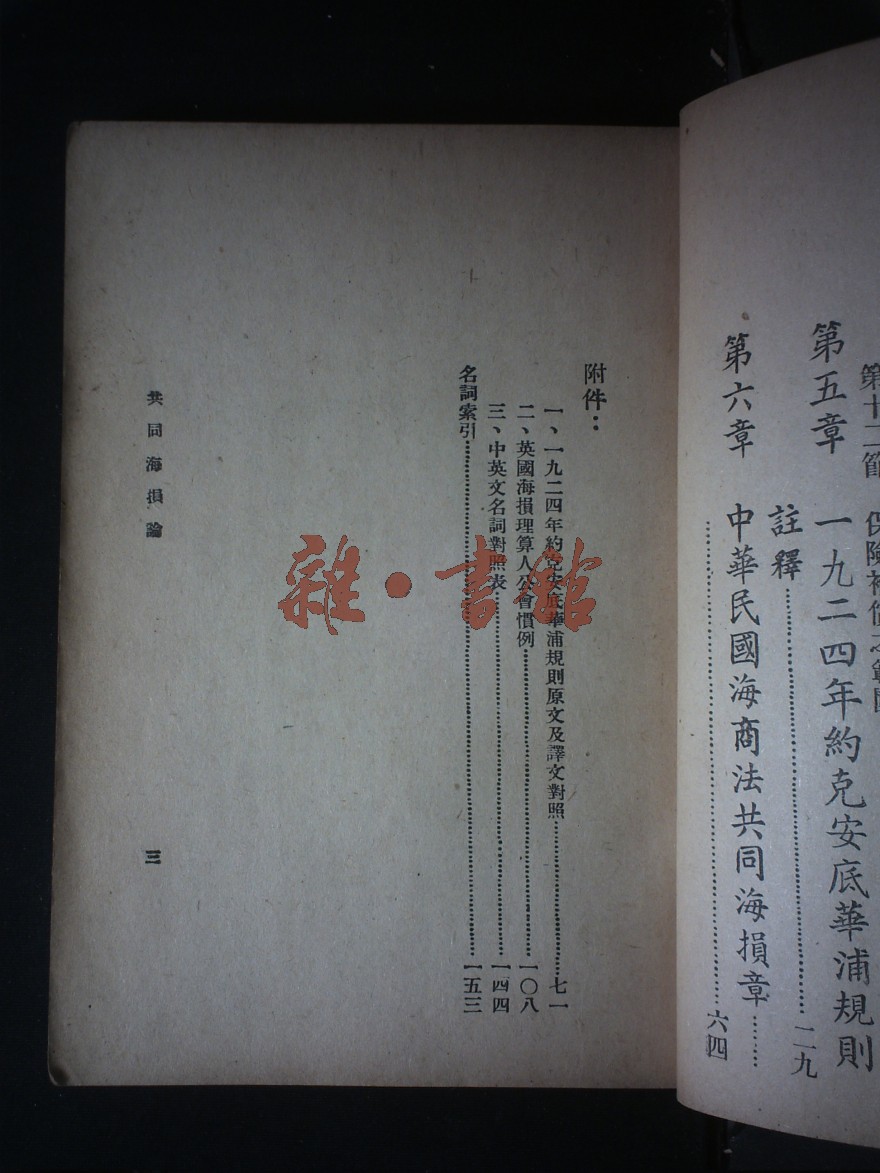 第十二節 保險補償之範圍
第五章 一九二四年約克安底華浦規則
註釋……二九
第六章 中華民國海商法共同海損章……
……六四
附件：
一、一九二四年約克安底華浦規則原文及譯文對照……七一
二、英國海損理算人公會慣例……一〇八
三、中英文名詞對照表……一四四
名詞索引……一五三
共同海損論
三
雜·書館